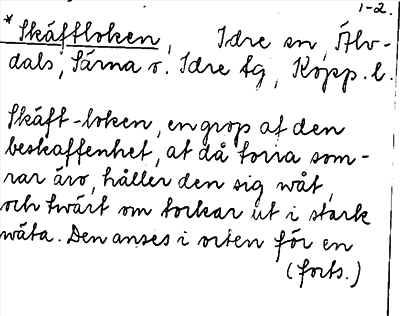 1-2.
* Skäftloken, Idre sn, Älv-
dals, Särna o. Idre tg, Kopp. l.
Skäft-loken, en grop af den
beskaffenhet, at då torra som-
rar äro, håller den sig wåt,
och twärt om torkar ut i stark
wäta. Den anses i orten för en
(forts.)